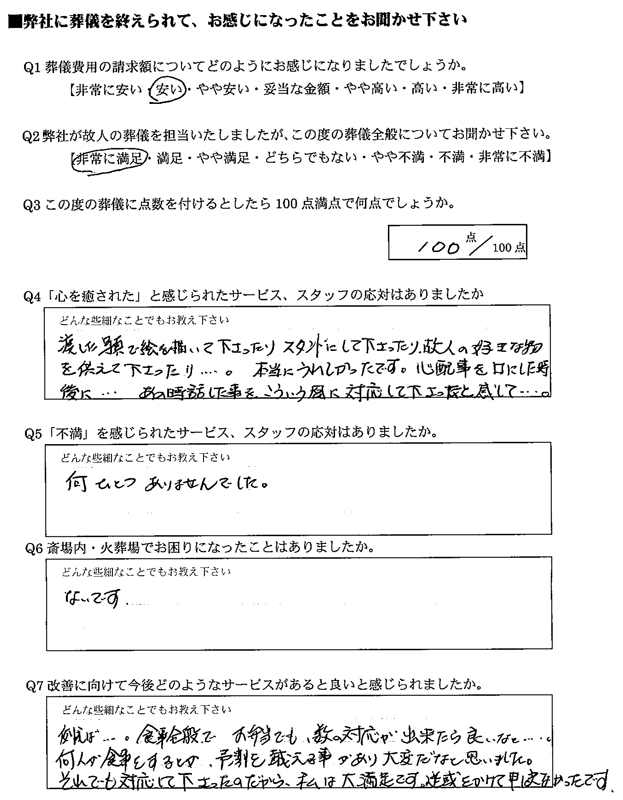 ■弊社に葬儀を終えられて、お感じになったことをお聞かせ下さい
Q1 葬儀費用の請求額についてどのようにお感じになりましたでしょうか。
【非常に安い・安い・やや安い・妥当な金額・やや高い・高い・非常に高い】
Q2 弊社が故人の葬儀を担当いたしましたが、この度の葬儀全般についてお聞かせ下さい。
【非常に満足・満足・やや満足・どちらでもない・やや不満・不満・非常に不満】
Q3 この度の葬儀に点数を付けるとしたら 100 点満点で何点でしょうか。
100 点/100 点
Q4「心を癒された」と感じられたサービス、スタッフの応対はありましたか
どんな些細なことでもお教え下さい
渡した額で絵を描いて下さったり スタンドにして下さったり、故人の好きな物
を供えて下さったり…。 本当にうれしかったです。心配事を口にした時
後に… あの時話した事を、こういう風に対応して下さったと感じて…。
Q5「不満」を感じられたサービス、スタッフの応対はありましたか。
どんな些細なことでもお教え下さい
何ひとつ ありませんでした。
Q6 斎場内・火葬場でお困りになったことはありましたか。
どんな些細なことでもお教え下さい
ないです.
Q7 改善に向けて今後どのようなサービスがあると良いと感じられましたか。
どんな些細なことでもお教え下さい
例えば…。食事全般で お弁当でも、数の対応が出来たら良いなと….
何人が食事をするとか、予測を越える事があり大変だなと思いました。
それでも対応して下さったのだから、私は大満足です。迷惑をかけて申し訳なかったです.